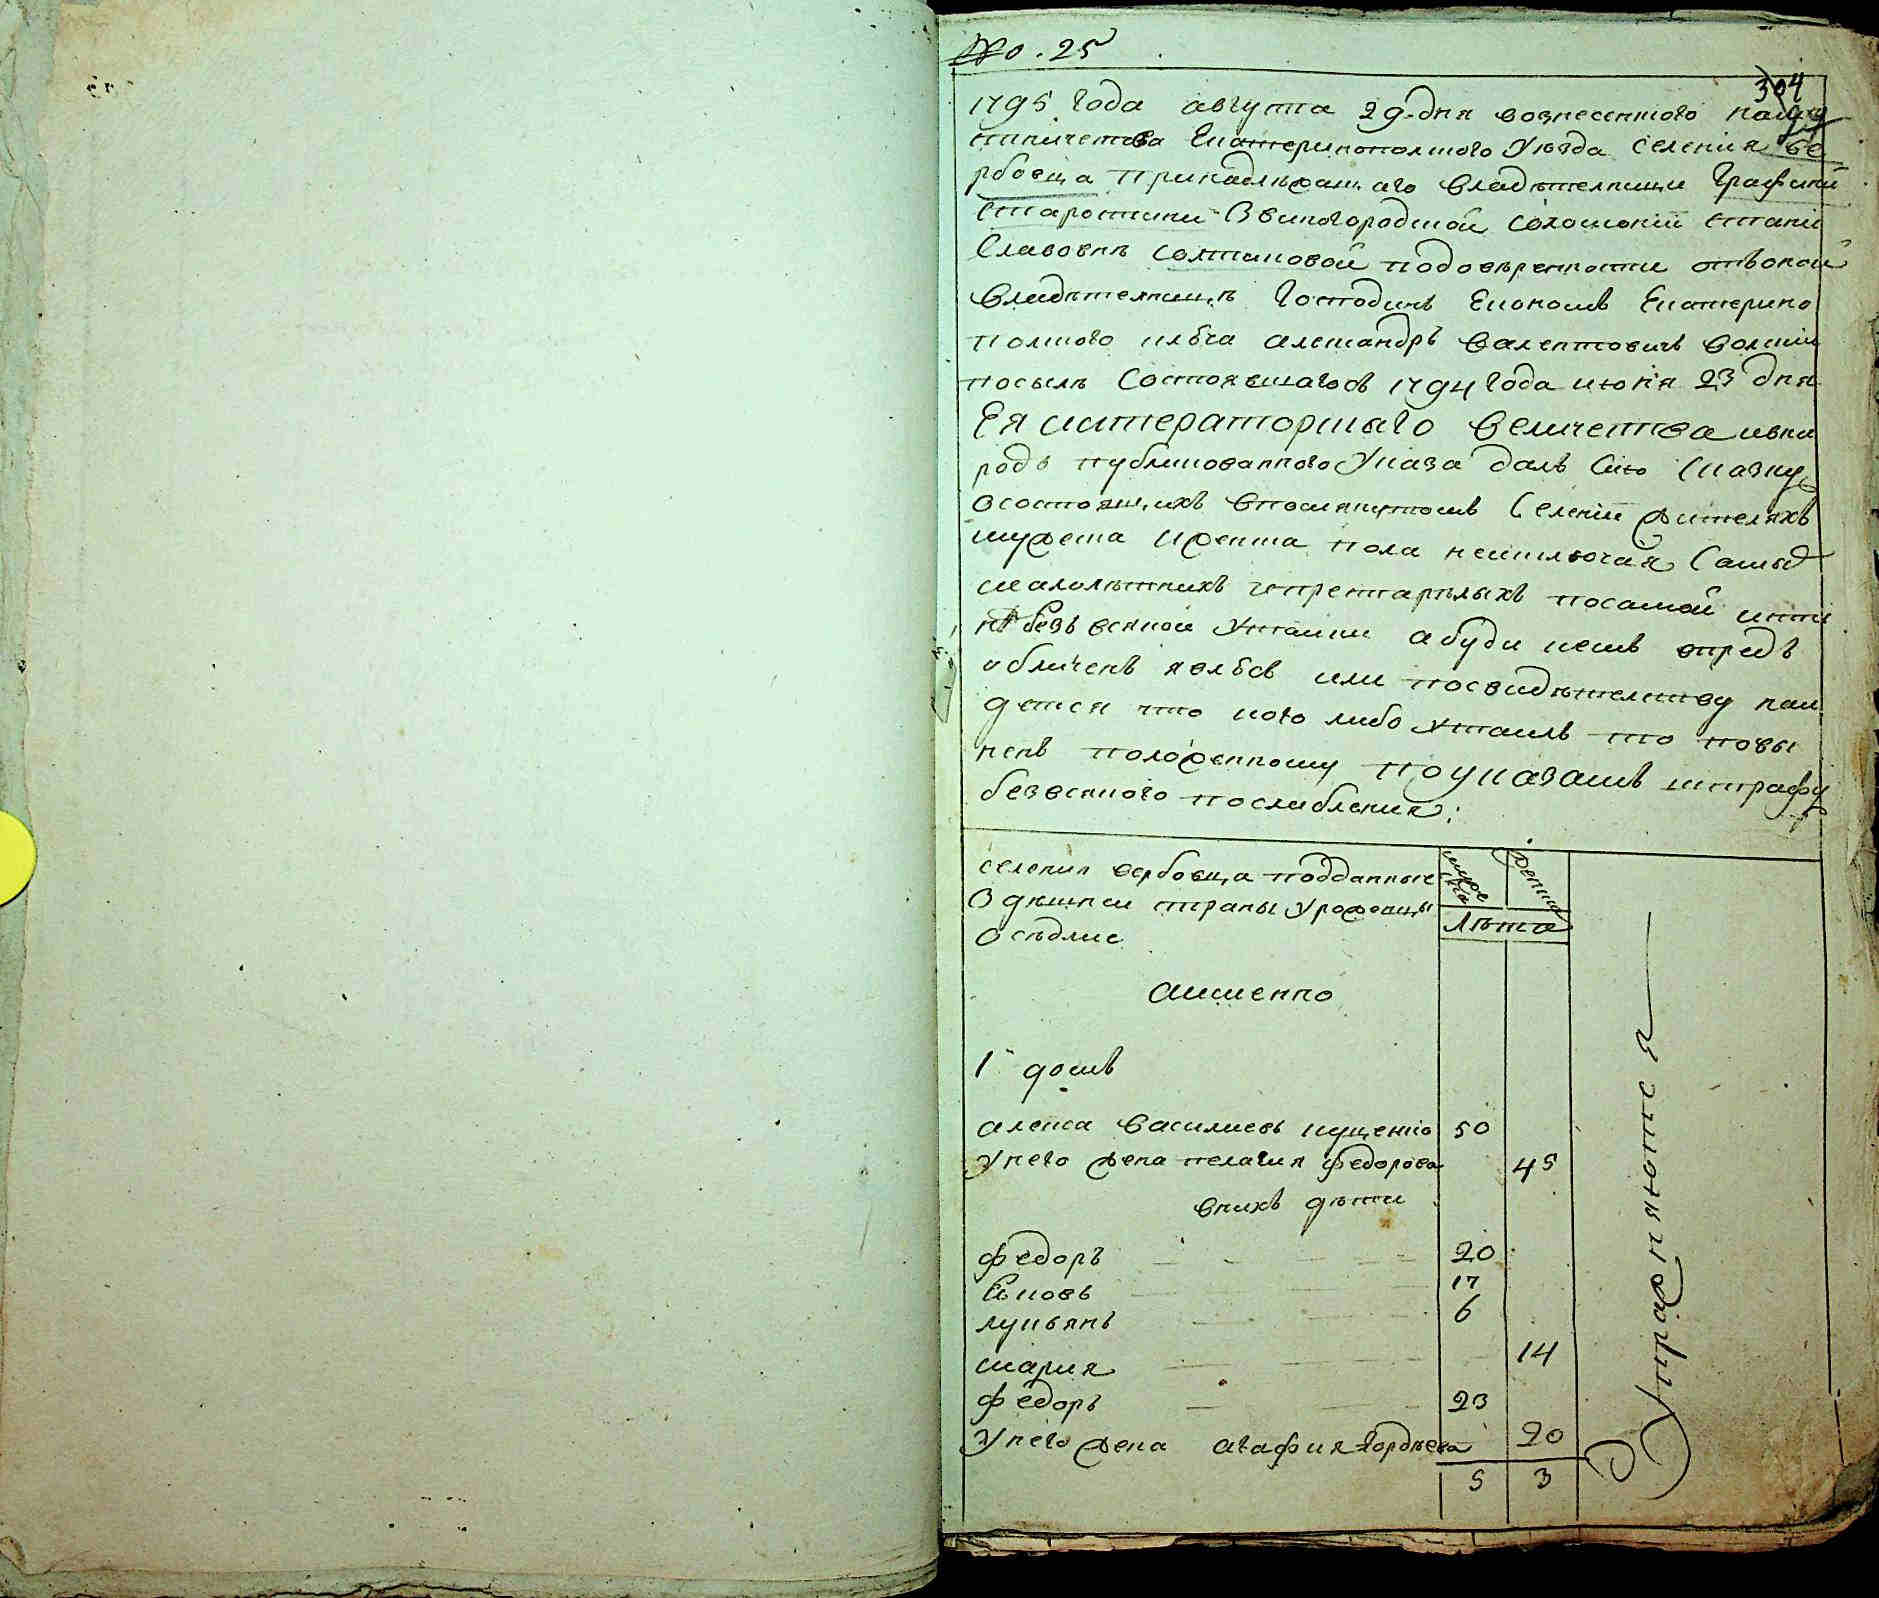 No. 25
304
1795 года августа 29 дня вознесенского наме
стничества Екатеринополского уезда селения ве
рбовца принадлежащаго владетелницы Графини
Старостины Звиногородской Соломонии Стани
Славовнъ Солтыковой подоверенности отъоной
владѣтелницѣ Господинъ Економъ Екатерино
полского ключа александръ валентовичъ волский
посылѣ Состоявшагося 1794 года июня 23 дня
Ея императорскаго величества ивна
родъ публикованного Указа далъ Сию Сказку
осостоящихъ впомянутомъ Селении жителяхъ
мужеска иженска пола неисключая Самыхъ
малолѣтнихъ ипрестарѣлыхъ посамой исти
нѣ безъ всякой Утайки абуди кемъ впредъ
обличенъ явлюсъ или посвидѣтелству най
дется что кого либо Утаилъ то пови
ненъ положенному поуказамъ штрафу
безвсякого послабления:
селения вербовца подданные
Здѣшней страны Уроженцы
Осѣдлые
мужеска
женска
Лѣта
аименно
1 домъ
алекса василиевъ куценко 50
Унего жена пелагия федорова 45
внихъ дѣти
федоръ 20
Яковъ 17
лукьянъ 6
мария 14
федоръ 23
Унего жена агафия гордѣева 20
5 3
Упражняются